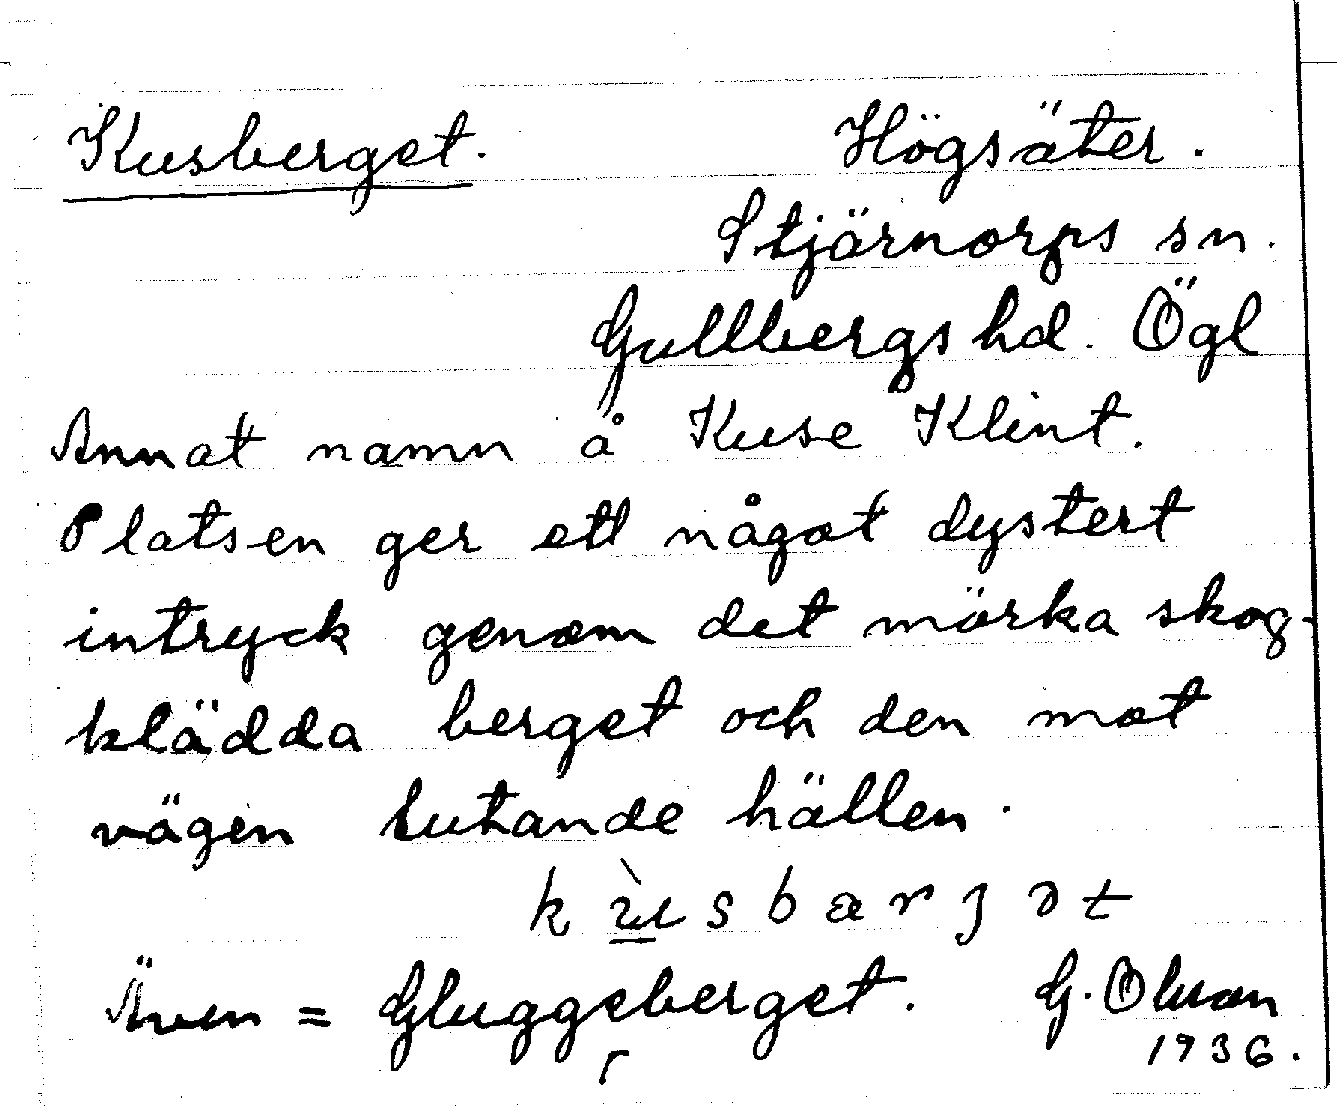 Kusberget. Högsäter.
Stjärnorps sn.
Gullbergs hd. Ögl
Annat namn å Kuse Klint.
Platsen ger ett något dystert
intryck genom det mörka skog-
klädda berget och den mot
vägen lutande hällen.
kùsbærjət
Även = Gluggeberget. G. Olsson
1936.